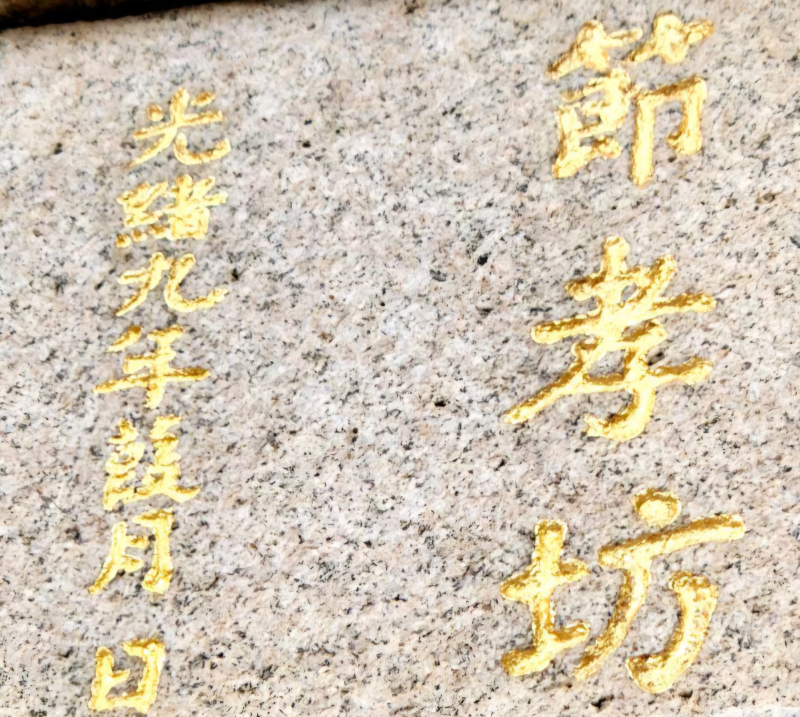 節孝坊
光緒九年葭月日